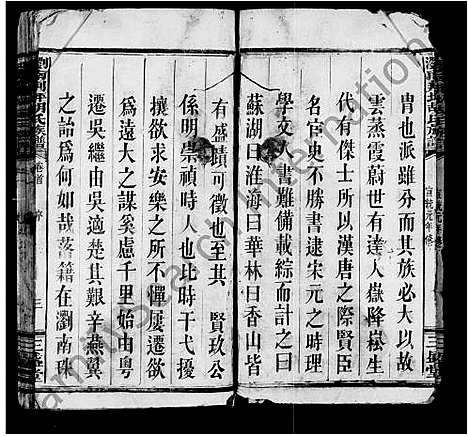 冑也派雖分而其族必大以故
雲蒸霞蔚世有達人嶽降崧生
代有傑士所以漢唐之際賢臣
名宦史不勝書逮宋元之時理
學交人書難備載綜而計之曰
蘇湖曰淮海曰華林曰香山皆
有盛蹟可徵也至其 賢玖公
係明崇禎時人也比時干戈擾
攘欲求安樂之所不憚屢遷欲
為遠大之謀奚慮千里始由粵
遷吳繼由吳適楚其艱辛燕翼
之詒為何如哉著籍在瀏南珠
卷首 序 三
三 堂